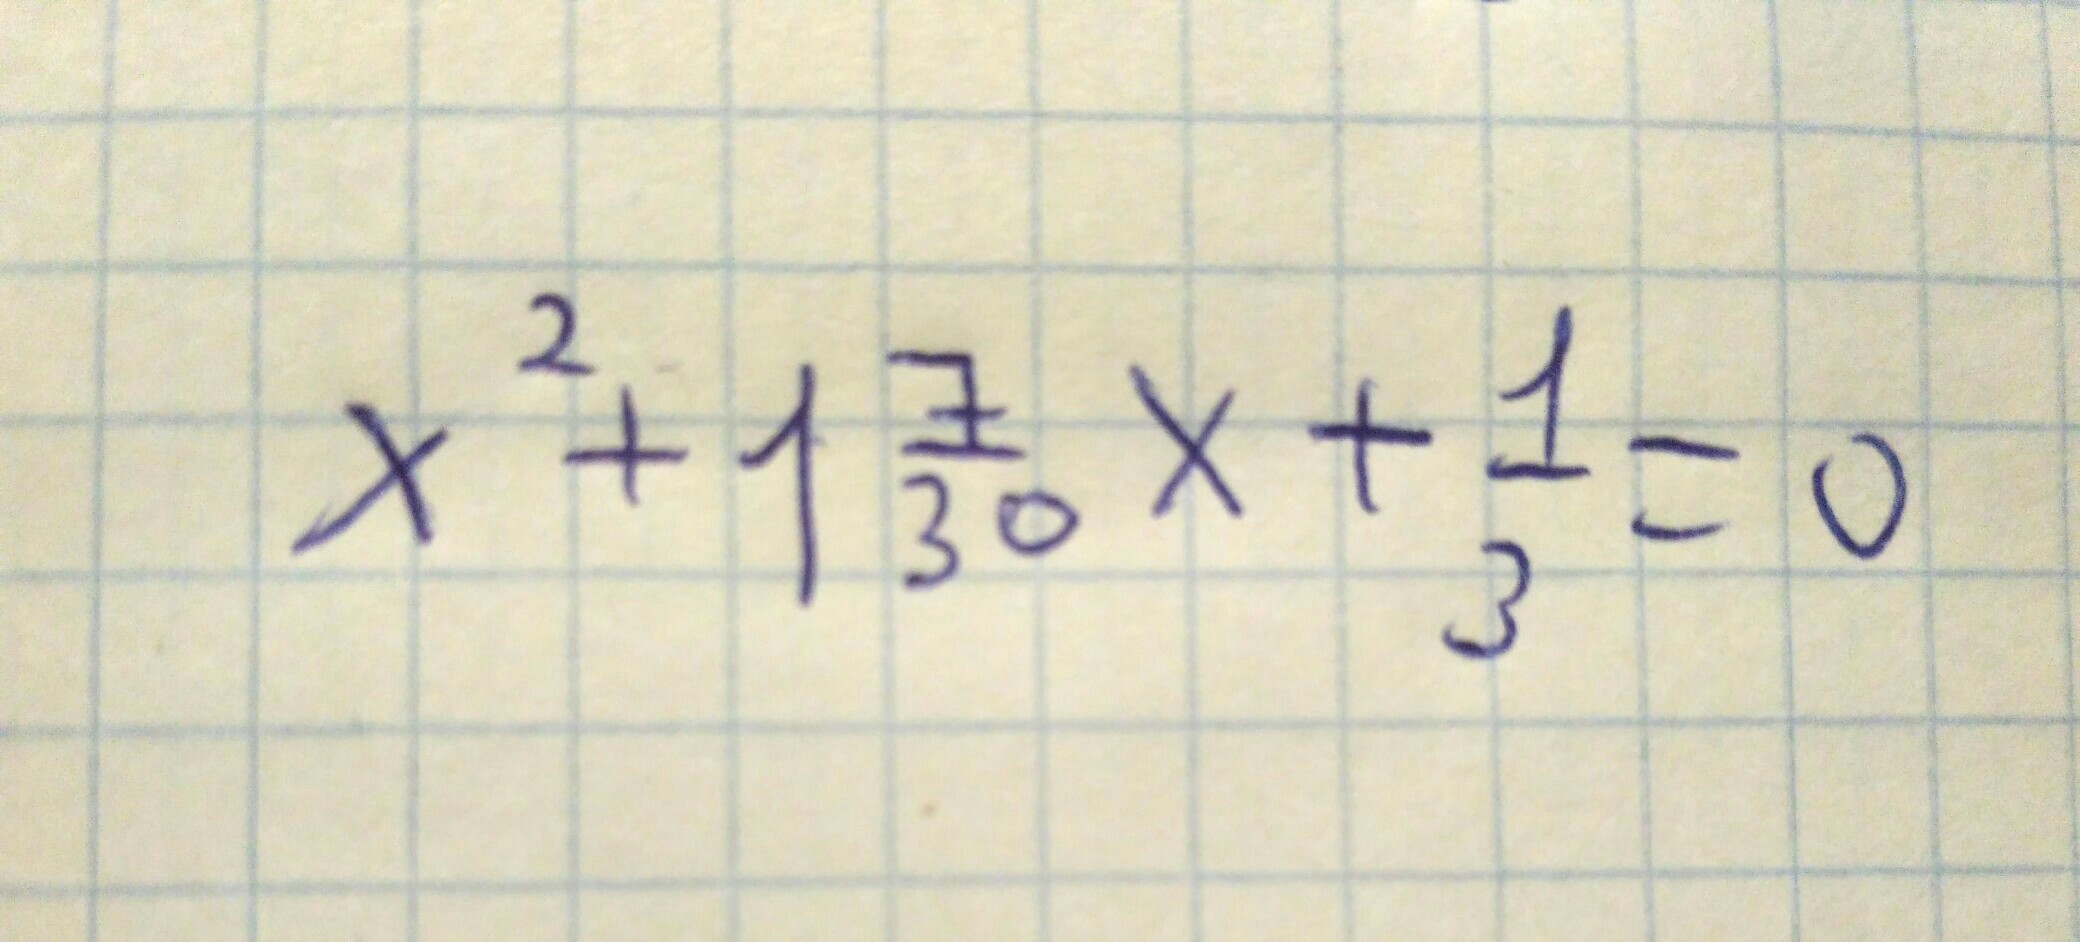 x² + 1 7/30 x + 1/3 = 0